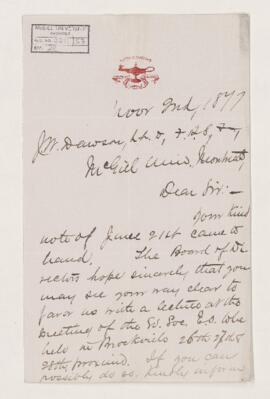 McGILL UNIVERSITY
ARCHIVES
ACC. NO.
Novr 2nd, 1877
J.W. Dawson, LL.D., F.R.S., &c,
McGill Univ., Montreal,
Dear Sir:—
Your kind
note of June 21st came to
hand. The Board of Di
rectors hope sincerely that you
may see your way clear to
favor us with a lecture at the
meeting of the Ed. Soc. E.O. to be
held in Brockville 26th 27th &
28th proximo. If you can
possibly do so, kindly inform